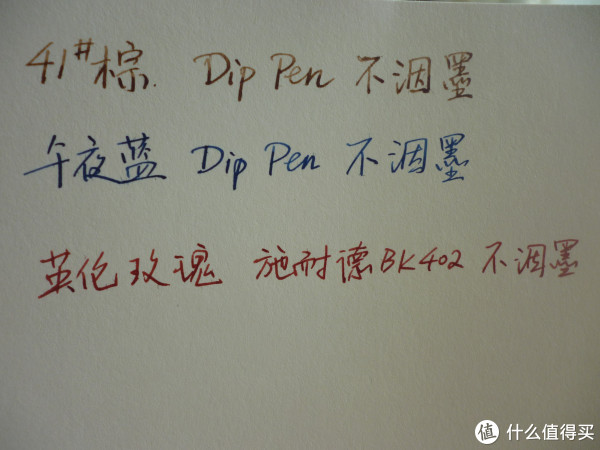 41#棕. Dip Pen 不洇墨
午夜蓝 Dip Pen 不洇墨
英伦玫瑰 施耐德BK402 不洇墨
值 什么值得买